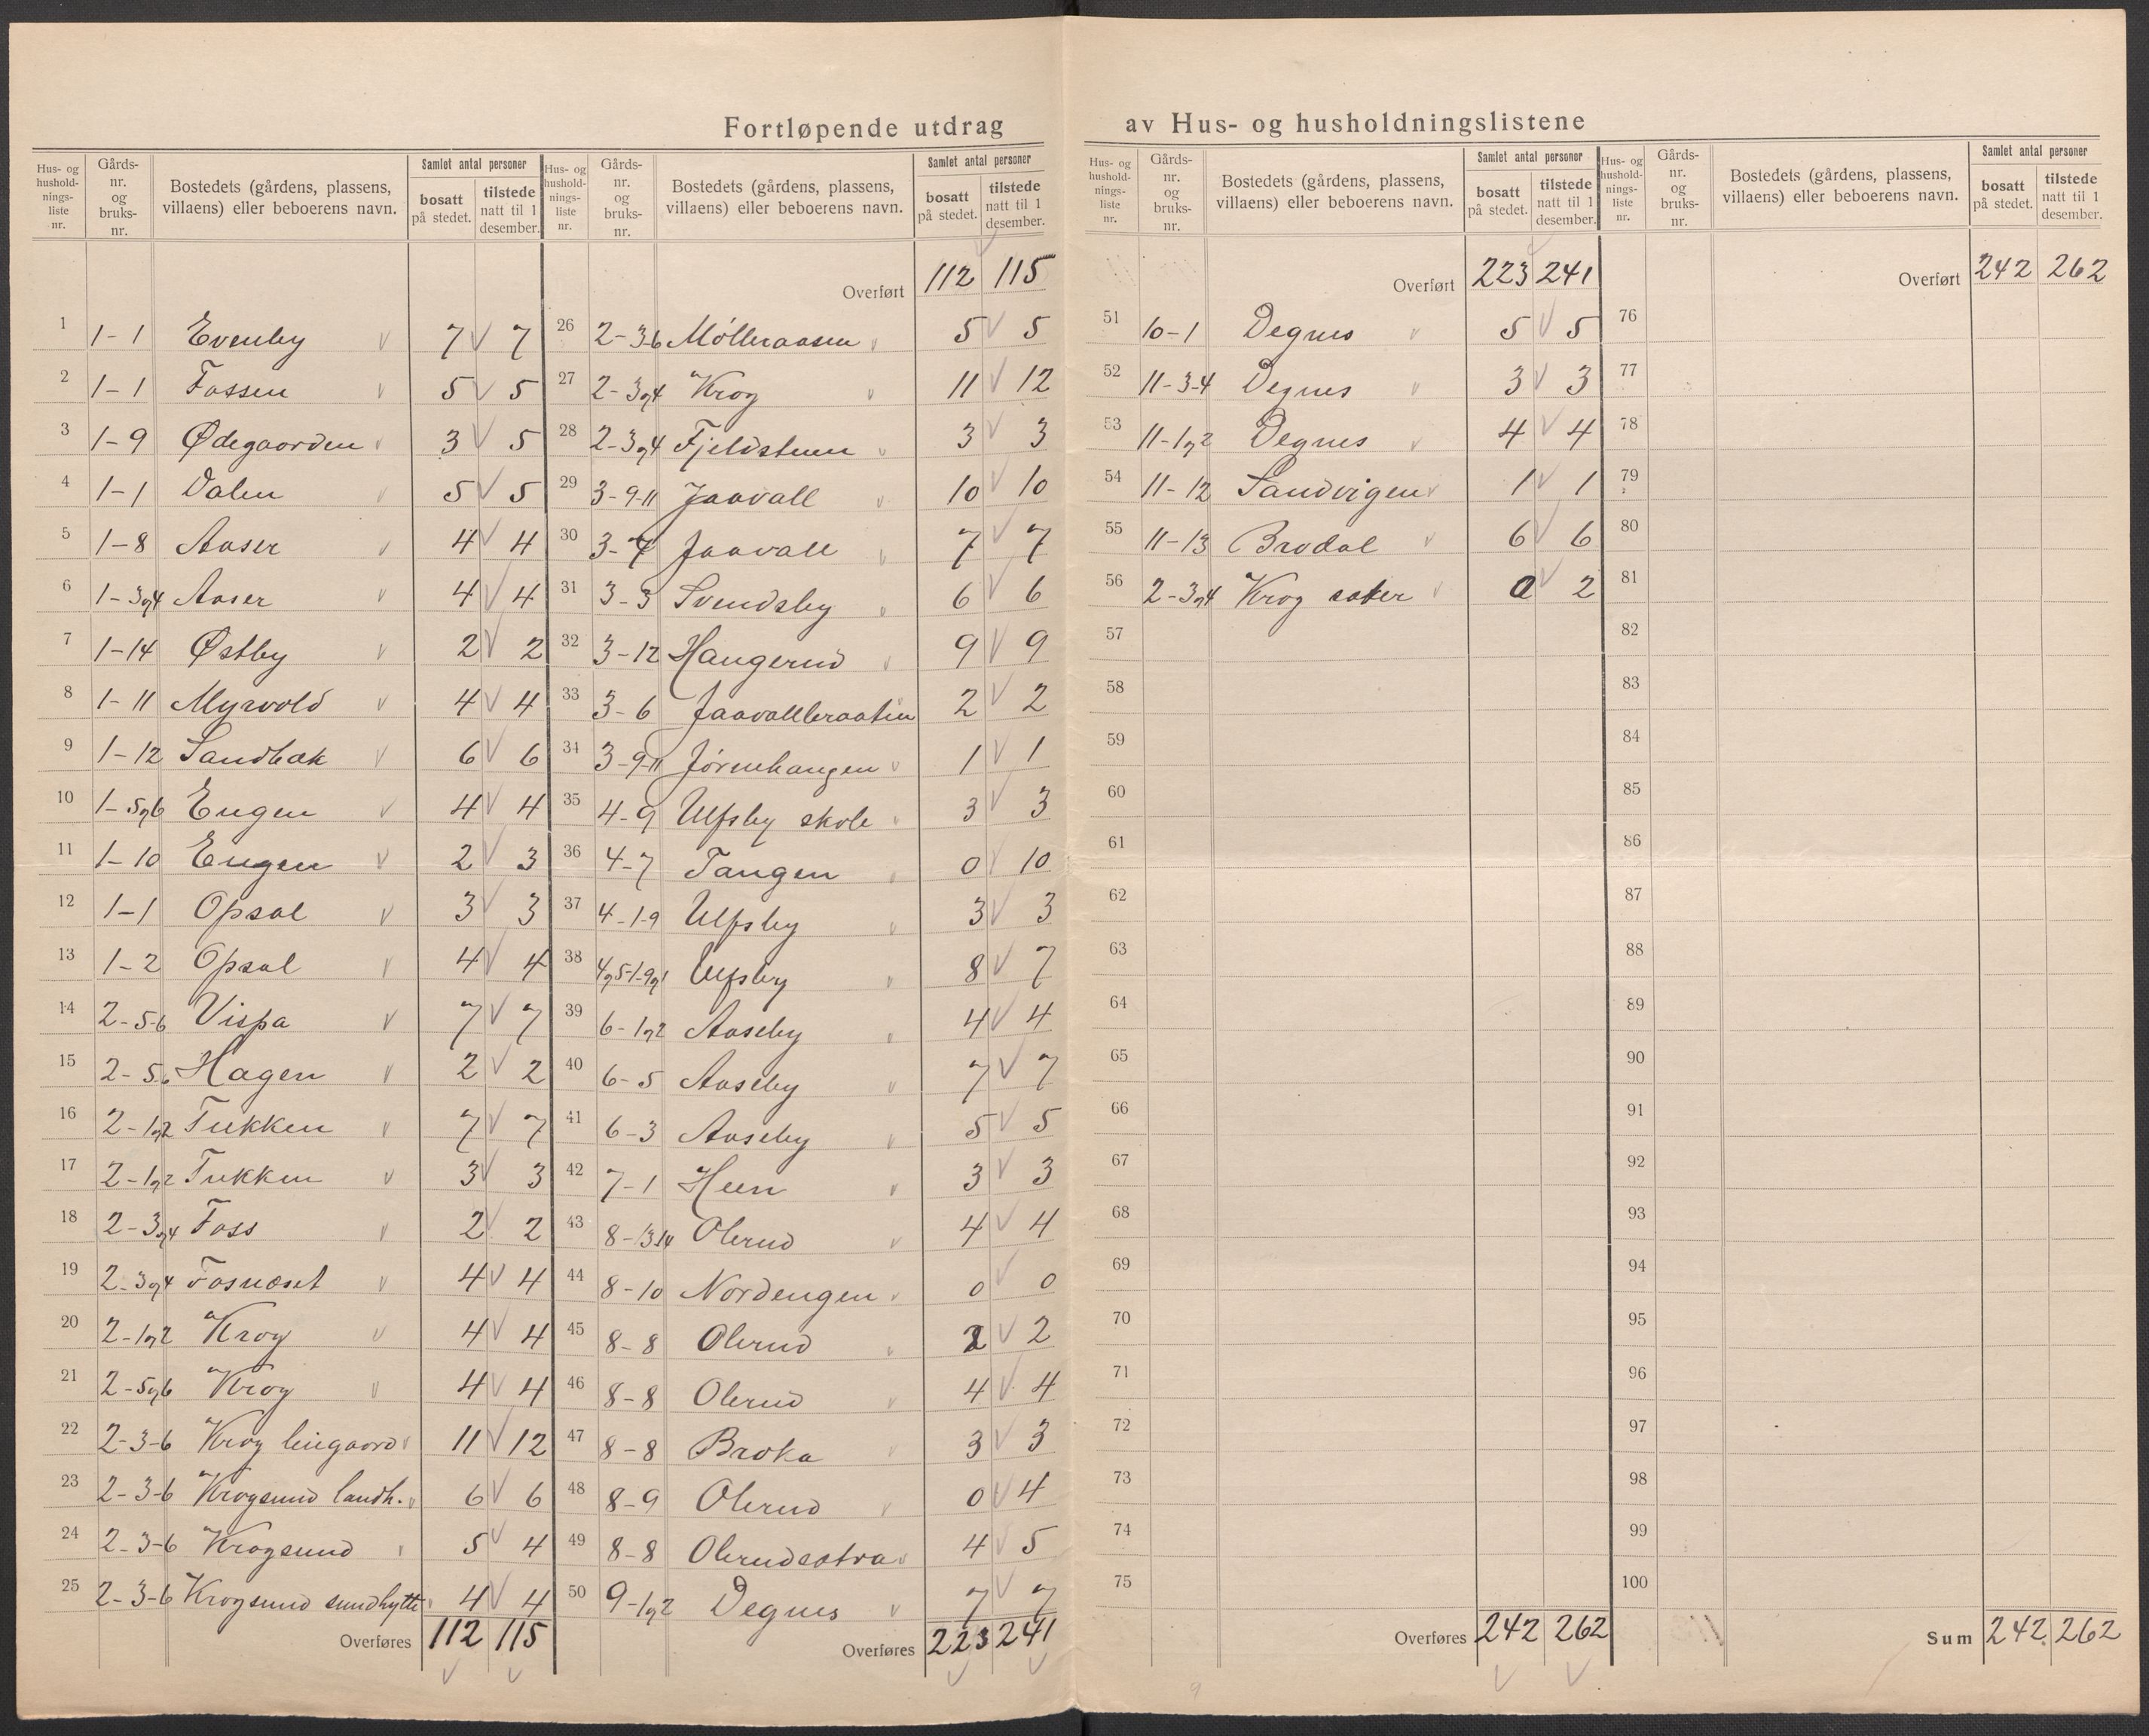 Fortløpende utdrag av Hus- og husholdningslistene
Hus- og hushold-nings-liste nr. Gårds-nr. og bruks-nr. Bostedets (gårdens, plassens, villaens) eller beboerens navn. Samlet antal personer bosatt på stedet. tilstede natt til 1 desember.
1 1-1 Evenby 7 7
2 1-1 Fossen 5 5
3 1-9 Ødegaarden 3 5
4 1-1 Dalen 5 5
5 1-8 Aaser 4 4
6 1-3og4 Aaser 4 4
7 1-14 Østby 2 2
8 1-11 Myrvold 4 4
9 1-12 Sandbæk 6 6
10 1-5og6 Engen 4 4
11 1-10 Engen 2 3
12 1-1 Opsal 3 3
13 1-2 Opsal 4 4
14 2-5-6 Vispa 7 7
15 2-5-6 Hagen 2 2
16 2-1og2 Tukken 7 7
17 2-1og2 Tukken 3 3
18 2-3og4 Foss 2 2
19 2-3og4 Fosnæset 4 4
20 2-1og2 Krog 4 4
21 2-5og6 Krog 4 4
22 2-3-6 Krog leiegaard 11 12
23 2-3-6 Krogsund landh. 6 6
24 2-3-6 Krogsund 5 4
25 2-3-6 Krogsund sundhytte 4 4
Overføres 112 115
Hus- og hushold-nings-liste nr. Gårds-nr. og bruks-nr. Bostedets (gårdens, plassens, villaens) eller beboerens navn. Samlet antal personer bosatt på stedet. tilstede natt til 1 desember.
Overført 112 115
26 2-3-6 Mølleraasen 5 5
27 2-3og4 Krog 11 12
28 2-3og4 Fjeldstuen 3 3
29 3-9-11 Jaavall 10 10
30 3-7 Jaavall 7 7
31 3-3 Svendsby 6 6
32 3-12 Haugerud 9 9
33 3-6 Jaavallbraaten 2 2
34 3-9-11 Jørnehaugen 1 1
35 4-9 Ulfsby skole 3 3
36 4-7 Tangen 0 10
37 4-1-9 Ulfsby 3 3
38 4og5-1-9og1 Ulfsby 8 7
39 6-1og2 Aaseby 4 4
40 6-5 Aaseby 7 7
41 6-3 Aaseby 5 5
42 7-1 Heen 3 3
43 8-13-14 Olerud 4 4
44 8-10 Nordengen 0 0
45 8-8 Olerud 2 2
46 8-8 Olerud 4 4
47 8-8 Broka 3 3
48 8-9 Olerud 0 4
49 8-8 Olerudsætra 4 5
50 9-1og2 Degnes 7 7
Overføres 223 241
Hus- og hushold-nings-liste nr. Gårds-nr. og bruks-nr. Bostedets (gårdens, plassens, villaens) eller beboerens navn. Samlet antal personer bosatt på stedet. tilstede natt til 1 desember.
Overført 223 241
51 10-1 Degnes 5 5
52 11-3-4 Degnes 3 3
53 11-1og2 Degnes 4 4
54 11-12 Sandvigen 1 1
55 11-13 Brodal 6 6
56 2-3og4 Krog sæter 0 2
57
58
59
60
61
62
63
64
65
66
67
68
69
70
71
72
73
74
75
Overføres 242 262
Hus- og hushold-nings-liste nr. Gårds-nr. og bruks-nr. Bostedets (gårdens, plassens, villaens) eller beboerens navn. Samlet antal personer bosatt på stedet. tilstede natt til 1 desember.
Overført 242 262
76
77
78
79
80
81
82
83
84
85
86
87
88
89
90
91
92
93
94
95
96
97
98
99
100
Sum 242 262